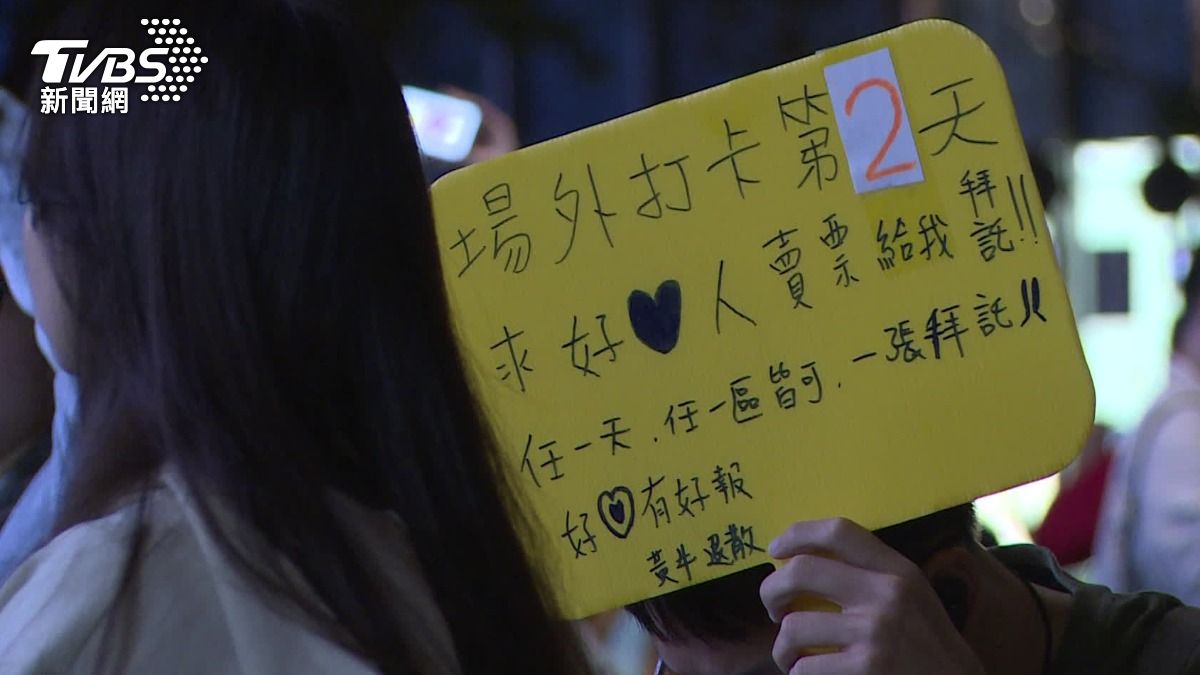 TVBS
新聞網
場外打卡第2天
求好♥人賣票給我拜託!!
任一天.任一區皆可.一張拜託!!
好♥有好報
黃牛退散